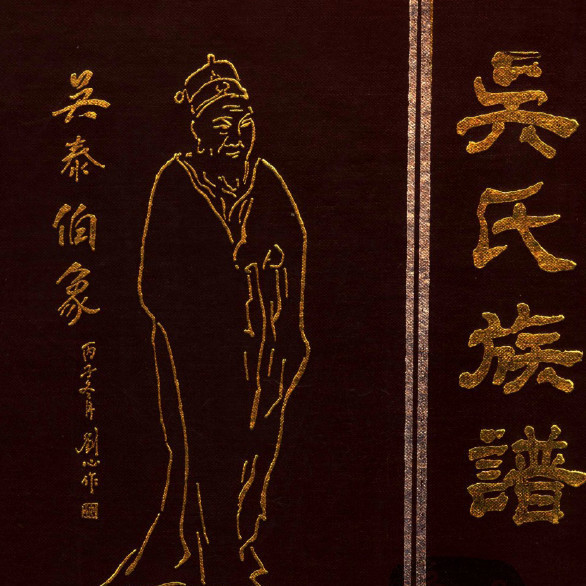 吴氏族譜
吴泰伯象
丙子冬月刘心作